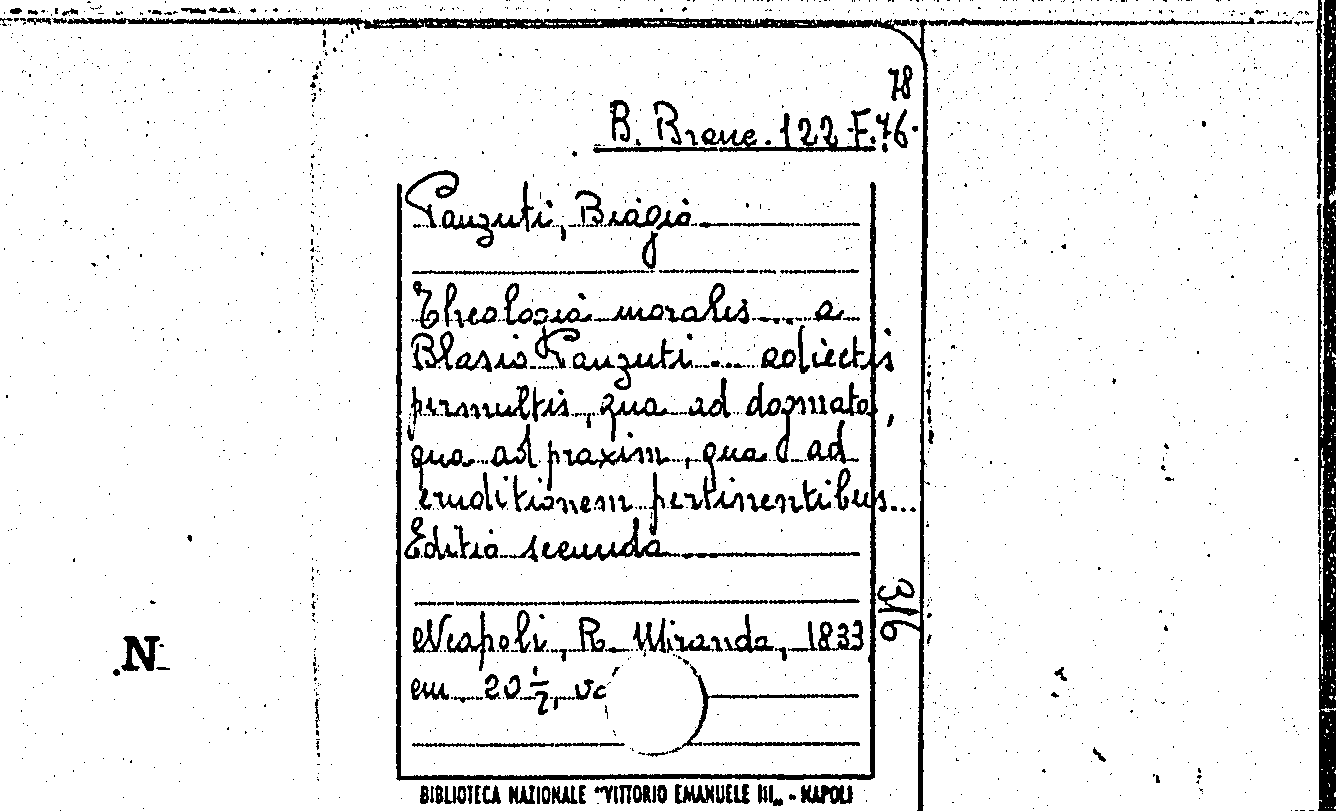 78
B. Branc. 122 F. 76.
Panzuti, Biagio
Theologia moralis ... a
Blasio Panzuti ... adiectis
permultis, qua ad dogmata,
qua ad praxim, qua ad
eruditionem pertinentibus...
Editio secunda
316
Neapoli, R. Miranda, 1833
cm. 20 1/2,
N
BIBLIOTECA NAZIONALE "VITTORIO EMANUELE III„ - NAPOLI